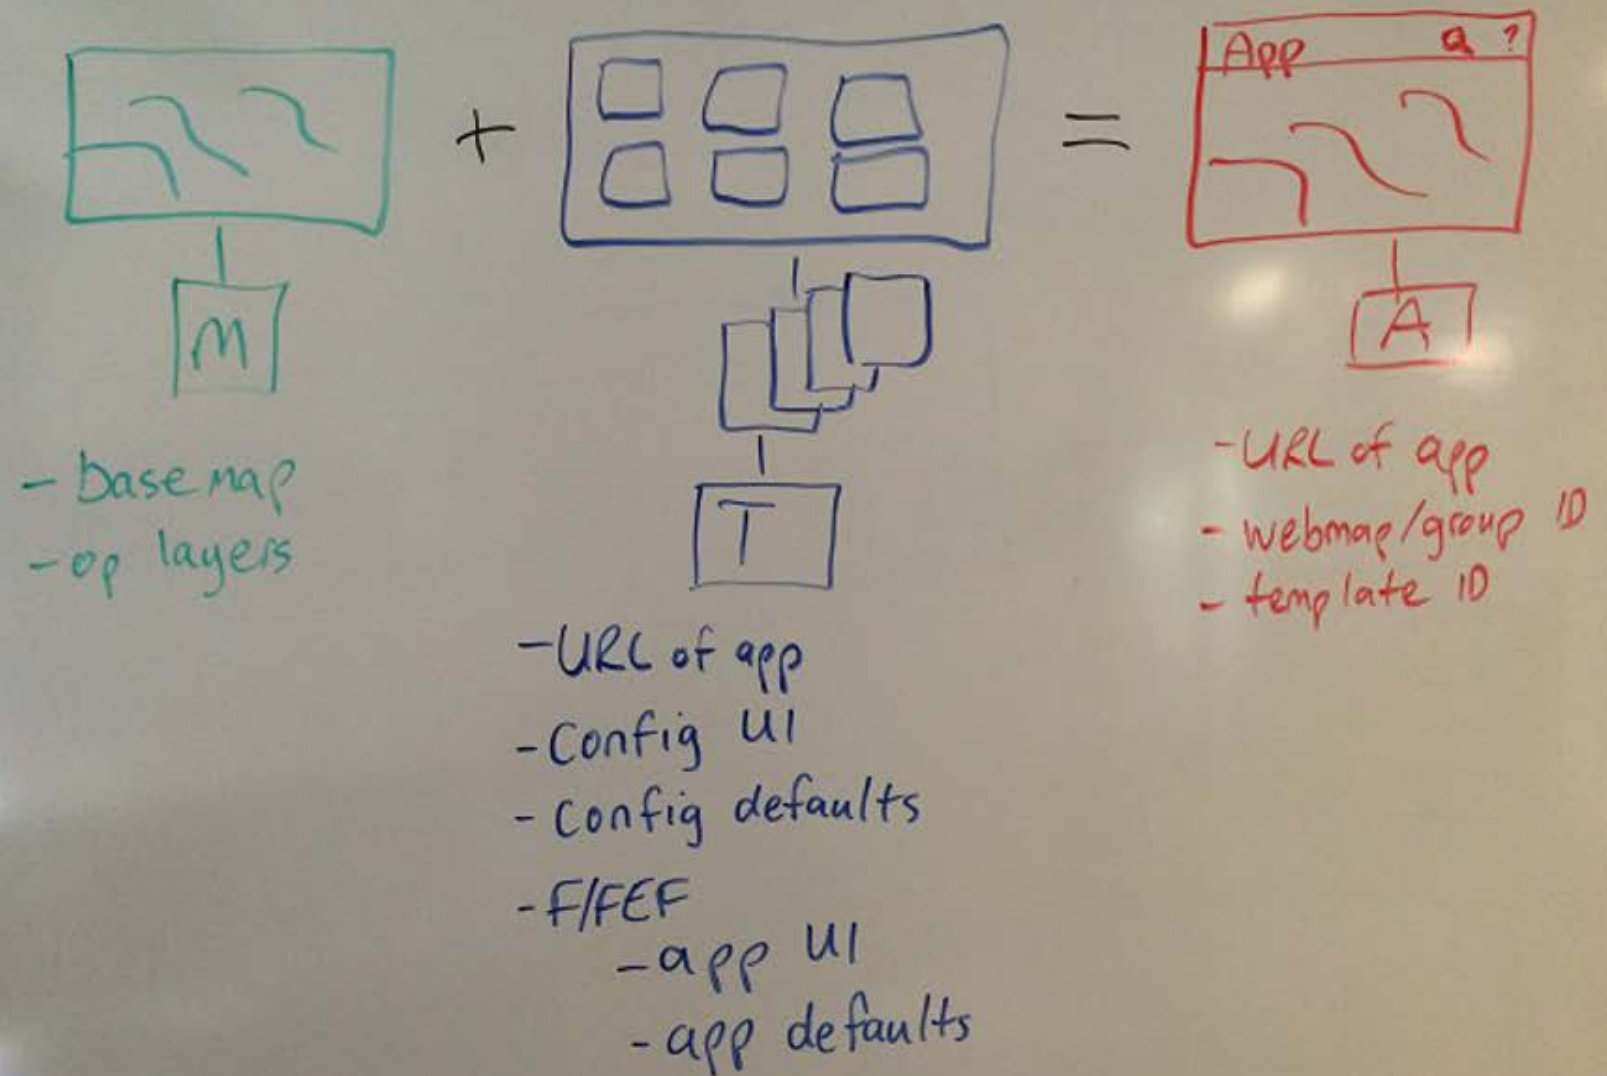 +
=
App ?
M
A
T
- basemap
- op layers
- URL of app
- Config UI
- Config defaults
- F/FEF
- app UI
- app defaults
- URL of app
- webmap/group ID
- template ID